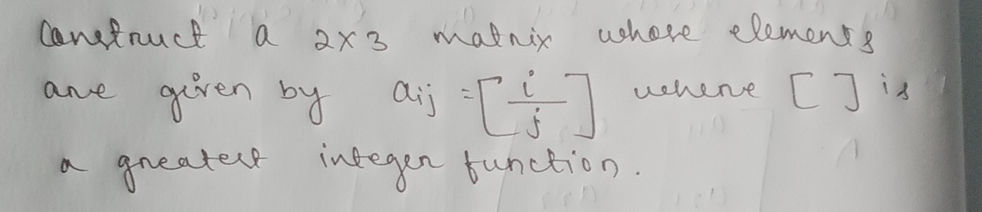 Construct a 2x3 matrix whose elements
are given by aij = [i/j] where [ ] is
a greatest integer function.